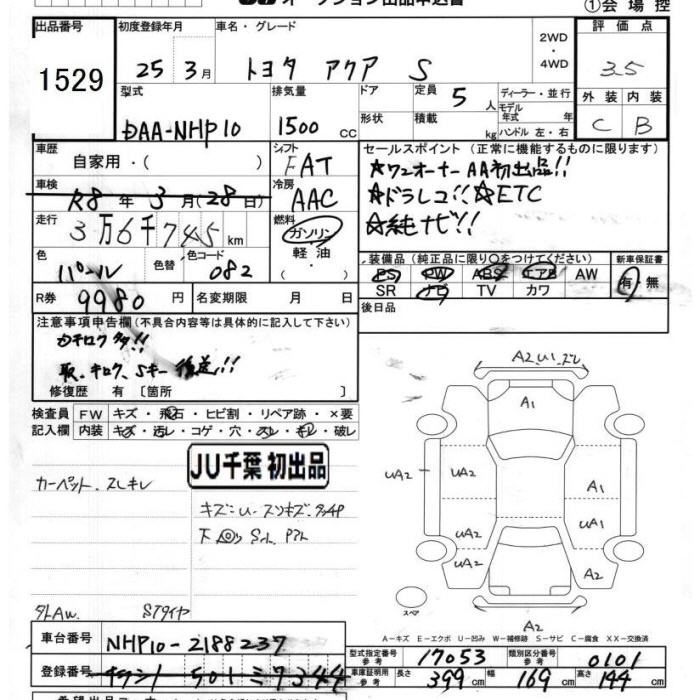 ①会場控
出品番号
1529
初度登録年月
25年3月
車名・グレード
トヨタ アクア S
2WD
・
4WD
評価点
3.5
外装 内装
C B
型式
DAA-NHP10
排気量
1500 cc
ドア
形状
定員 5 人
積載 kg
ディーラー・並行
モデル年式 年
ハンドル 左・右
車歴
自家用・( )
シフト
FAT
車検
R8年3月(28日)
冷房
AAC
走行
3万6千745km
燃料
ガソリン
・
軽油
・
色
パール
色替
色コード
082
R券
9980円
名変期限 月 日
セールスポイント(正常に機能するものに限ります)
☆ワンオーナーAA初出品!!
☆ドラレコ!!☆ETC
☆純ナビ!!
装備品(純正品に限り○をつけてください)
新車保証書
PS PW ABS エアB AW
SR ナビ TV カワ
有・無
後日品
注意事項申告欄(不具合内容等は具体的に記入して下さい)
カキロク タタ!!
取、キロク、Sキー後送!!
修復歴 有〔箇所 〕
検査員
記入欄
FW キズ・飛石・ヒビ割・リペア跡・×要
内装 キズ・汚レ・コゲ・穴・スレ・キレ・破レ
JU千葉 初出品
カーペット、スレキレ
キズ:U、スリキズ、
A2,U1,ズレ
A1
UA2
UA2
A1
UA2
UA1
UA2
A2
スペア
A2
A-キズ E-エクボ U-凹み W-補修跡 S-サビ C-腐食 XX-交換済
車台番号
NHP10-2188237
登録番号
501ミ7344
型式指定番号
参考
17053
類別区分番号
参考
0101
車庫証明用
参考
長さ 399cm
幅 169cm
高さ 144cm